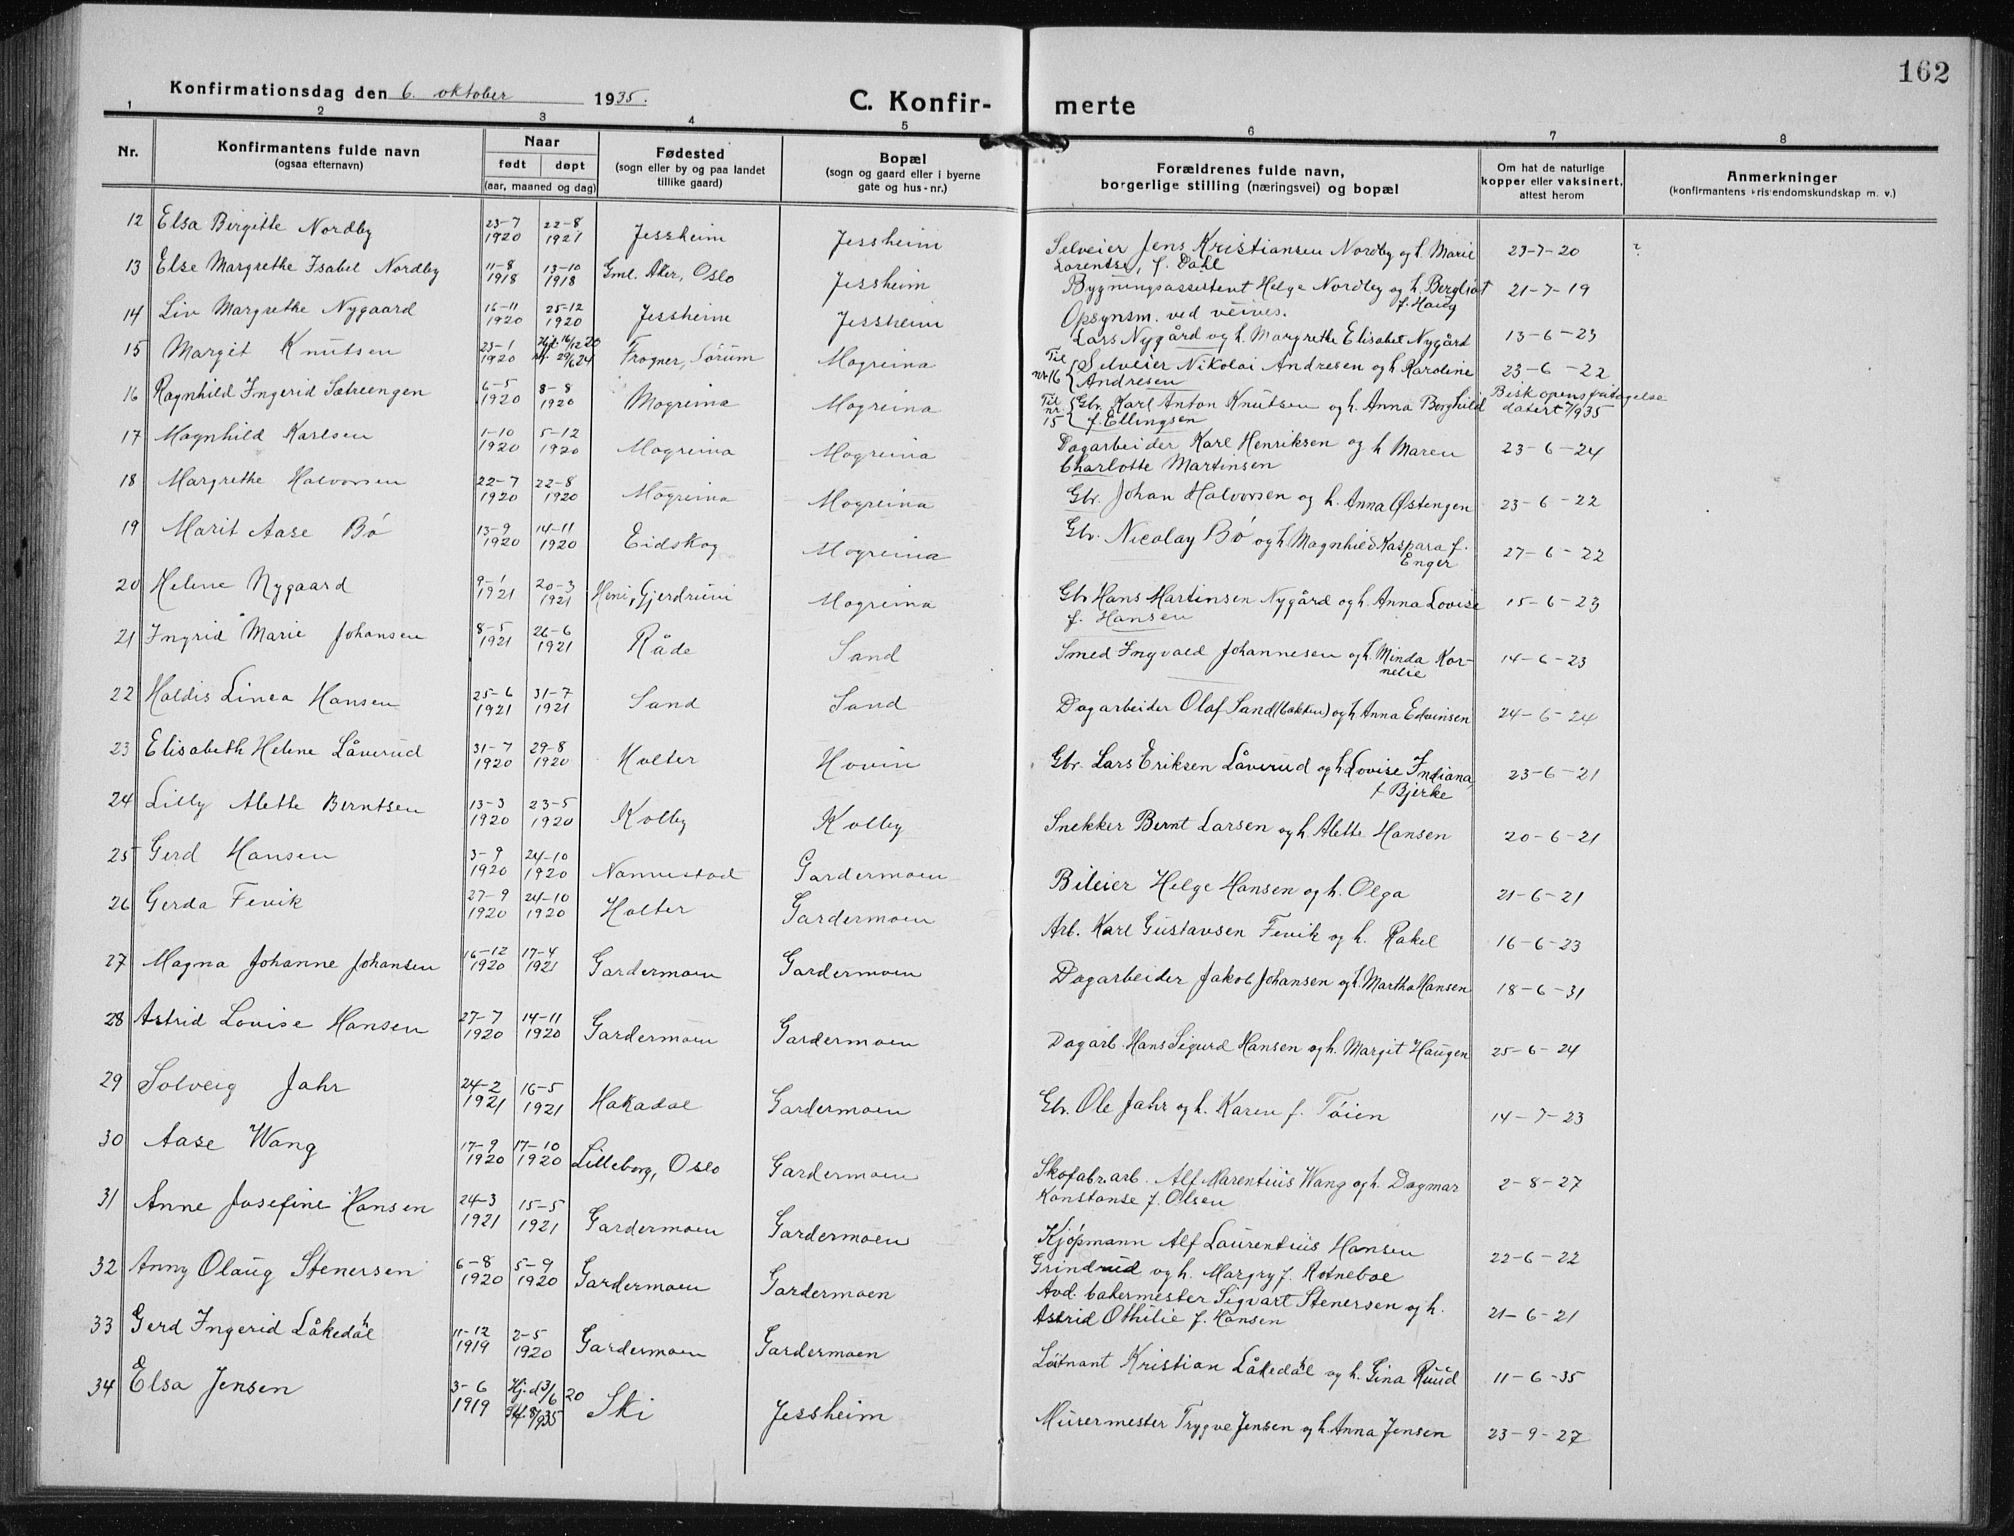 162
Konfirmationsdag den 6. oktober 1935.
C. Konfir- merte
1 2 3 4 5 6 7 8
Nr.
Konfirmantens fulde navn
(ogsaa efternavn)
Naar
født døpt
(aar, maaned og dag)
Fødested
(sogn eller by og paa landet
tillike gaard)
Bopæl
(sogn og gaard eller i byerne
gate og hus-nr.)
Forældrenes fulde navn,
borgerlige stilling (næringsvei) og bopæl
Om hat de naturlige
kopper eller vaksinert,
attest herom
Anmerkninger
(konfirmantens kristendomskundskap m. v.)
12 Elsa Birgitte Nordby 23-7 1920 22-8 1921 Jessheim Jessheim Selveier Jens Kristiansen Nordby og h. Marie 23-7-20 ?
Lorentse, f. Dahl
13 Else Margrethe Isabel Nordby 11-8 1918 13-10 1918 Gml. Aker, Oslo Jessheim Bygningsassistent Helge Nordby og h. Bergliot 21-7-19
f. Haug
14 Liv Margrethe Nygaard 16-11 1920 25-12 1920 Jessheim Jessheim Opsynsm. ved veives.
Lars Nygård og h. Margrethe Elisabet Nygård 13-6-23
15 Margit Knutsen 23-1 1920 Hjd. 16/12 20 29/6 24 Frogner, Sørum Mogreina Til nr. 16 { Selveier Nikolai Andresen og h Karoline 23-6-22
Andresen
16 Ragnhild Ingerid Sætreengen 6-5 1920 8-8 1920 Mogreina Mogreina Til nr. 15 { Gbr. Karl Anton Knutsen og h. Anna Borghild Biskopens fritagelse
f. Ellingsen datert 7/9 35
17 Magnhild Karlsen 1-10 1920 5-12 1920 Mogreina Mogreina Dagarbeider Karl Henriksen og h Maren 23-6-24
Charlotte Martinsen
18 Margrethe Halvorsen 22-7 1920 22-8 1920 Mogreina Mogreina Gbr. Johan Halvorsen og h. Anna Østengen 23-6-22
19 Marit Aase Bø 13-9 1920 14-11 1920 Eidskog Mogreina Gbr. Nicolay Bø og h Magnhild Kaspara f. 27-6-22
Enger
20 Helene Nygaard 9-1 1921 20-3 1921 Heni, Gjerdrum Mogreina Gbr Hans Martinsen Nygård og h. Anna Lovise 15-6-23
f. Hansen
21 Ingrid Marie Johansen 8-5 1921 26-6 1921 Råde Sand Smed Ingvald Johannesen og h. Minda Kor- 14-6-23
nelie
22 Haldis Linea Hansen 25-6 1921 31-7 1921 Sand Sand Dagarbeider Olaf Sand (bakken) og h Anna Edvinsen 24-6-24
23 Elisabeth Helene Låverud 31-7 1920 29-8 1920 Holter Hovin Gbr. Lars Eriksen Låverud og h Lovise Indiana, 23-6-21
f Bjerke
24 Lilly Alette Berntsen 13-3 1920 23-5 1920 Kolby Kolby Snekker Bernt Larsen og h. Alette Hansen 20-6-21
25 Gerd Hansen 3-9 1920 24-10 1920 Nannestad Gardermoen Bileier Helge Hansen og h. Olga 21-6-21
26 Gerda Fevik 27-9 1920 24-10 1920 Holter Gardermoen Arb. Karl Gustavsen Fevik og h. Rakel 16-6-23
27 Magna Johanne Johansen 16-12 1920 17-4 1921 Gardermoen Gardermoen Dagarbeider Jakob Johansen og h. Martha Hansen 18-6-31
28 Astrid Lovise Hansen 27-7 1920 14-11 1920 Gardermoen Gardermoen Dagarb. Hans Sigurd Hansen og h. Margit Haugen 25-6-24
29 Solveig Jahr 24-2 1921 16-5 1921 Hakadal Gardermoen Gbr. Ole Jahr og h. Karen f. Tøien 14-7-23
30 Aase Wang 17-9 1920 17-10 1920 Lilleborg, Oslo Gardermoen Skofabr.arb. Alf Marentius Wang og h. Dagmar 2-8-27
Konstanse f. Olsen
31 Anne Josefine Hansen 24-3 1921 15-5 1921 Gardermoen Gardermoen Kjøpmann Alf Laurentius Hansen 22-6-22
Grindrud og h. Margry f. Rotneboe
32 Anny Olaug Stenersen 6-8 1920 5-9 1920 Gardermoen Gardermoen Avd. bakermester Sigvart Stenersen og h. 21-6-21
Astrid Othilie f. Hansen
33 Gerd Ingerid Låkedahl 11-12 1919 2-5 1920 Gardermoen Gardermoen Løitnant Kristian Låkedahl og h. Gina Ruud 11-6-35
34 Elsa Jensen 3-6 1919 Hj.d 3/6 20 8/9 35 Ski Jessheim Murermester Trygve Jensen og h. Anna Jensen 23-9-27